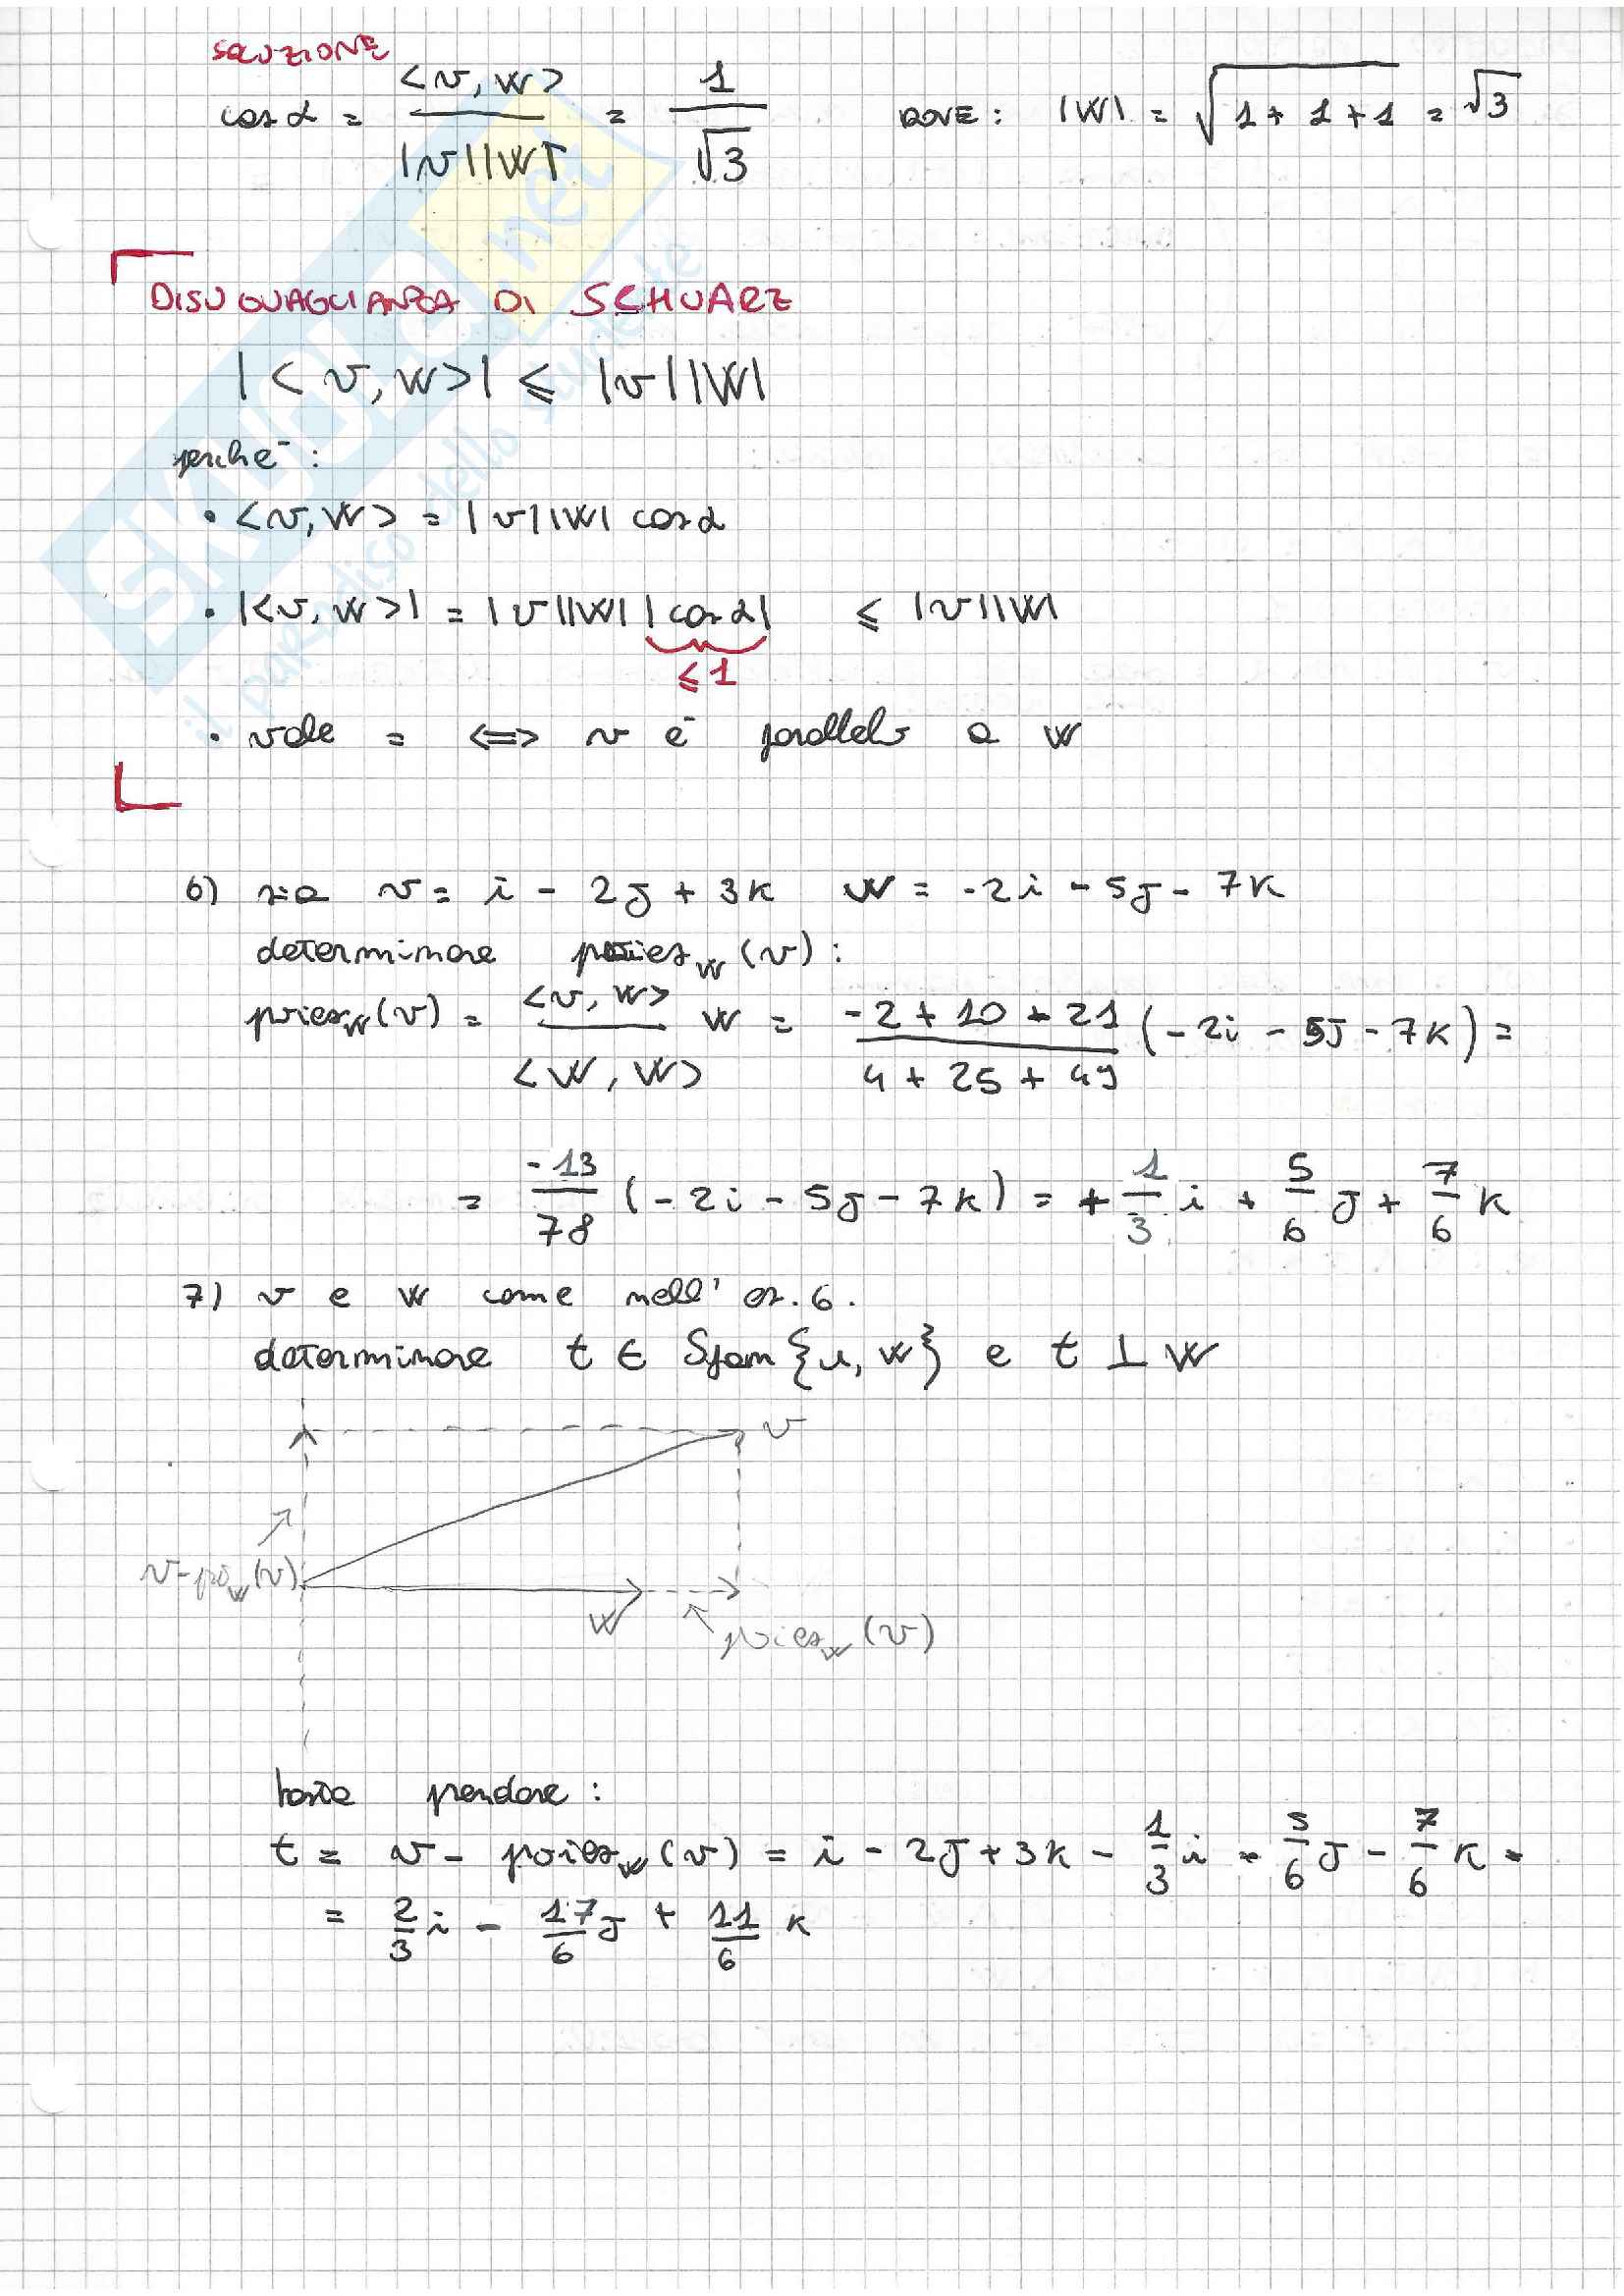 SOLUZIONE
cos α = <v, w> / |v||w| = 1 / √3 DOVE: |w| = √1+1+1 = √3
DISUGUAGLIANZA DI SCHUARZ
|<v, w>| ≤ |v||w|
perchē:
• <v, w> = |v||w| cos α
• |<v, w>| = |v||w| |cos α| ≤ |v||w|
≤ 1
• vale = ⟺ v ē parallelo a w
6) sia v = i - 2j + 3k w = -2i - 5j - 7k
determinare proiez_w (v):
proiez_w (v) = <v, w> / <w, w> w = -2 + 10 - 21 / 4 + 25 + 49 (-2i - 5j - 7k) =
= -13/78 (-2i - 5j - 7k) = + 1/3 i + 5/6 j + 7/6 k
7) v e w come nell' es. 6.
determinare t ∈ Span {v, w} e t ⊥ w
v
v - pro_w (v)
w
proiez_w (v)
basta prendere:
t = v - proiez_w (v) = i - 2j + 3k - 1/3 i - 5/6 j - 7/6 k =
= 2/3 i - 17/6 j + 11/6 k
SKUOLA.net
il paradiso dello studente